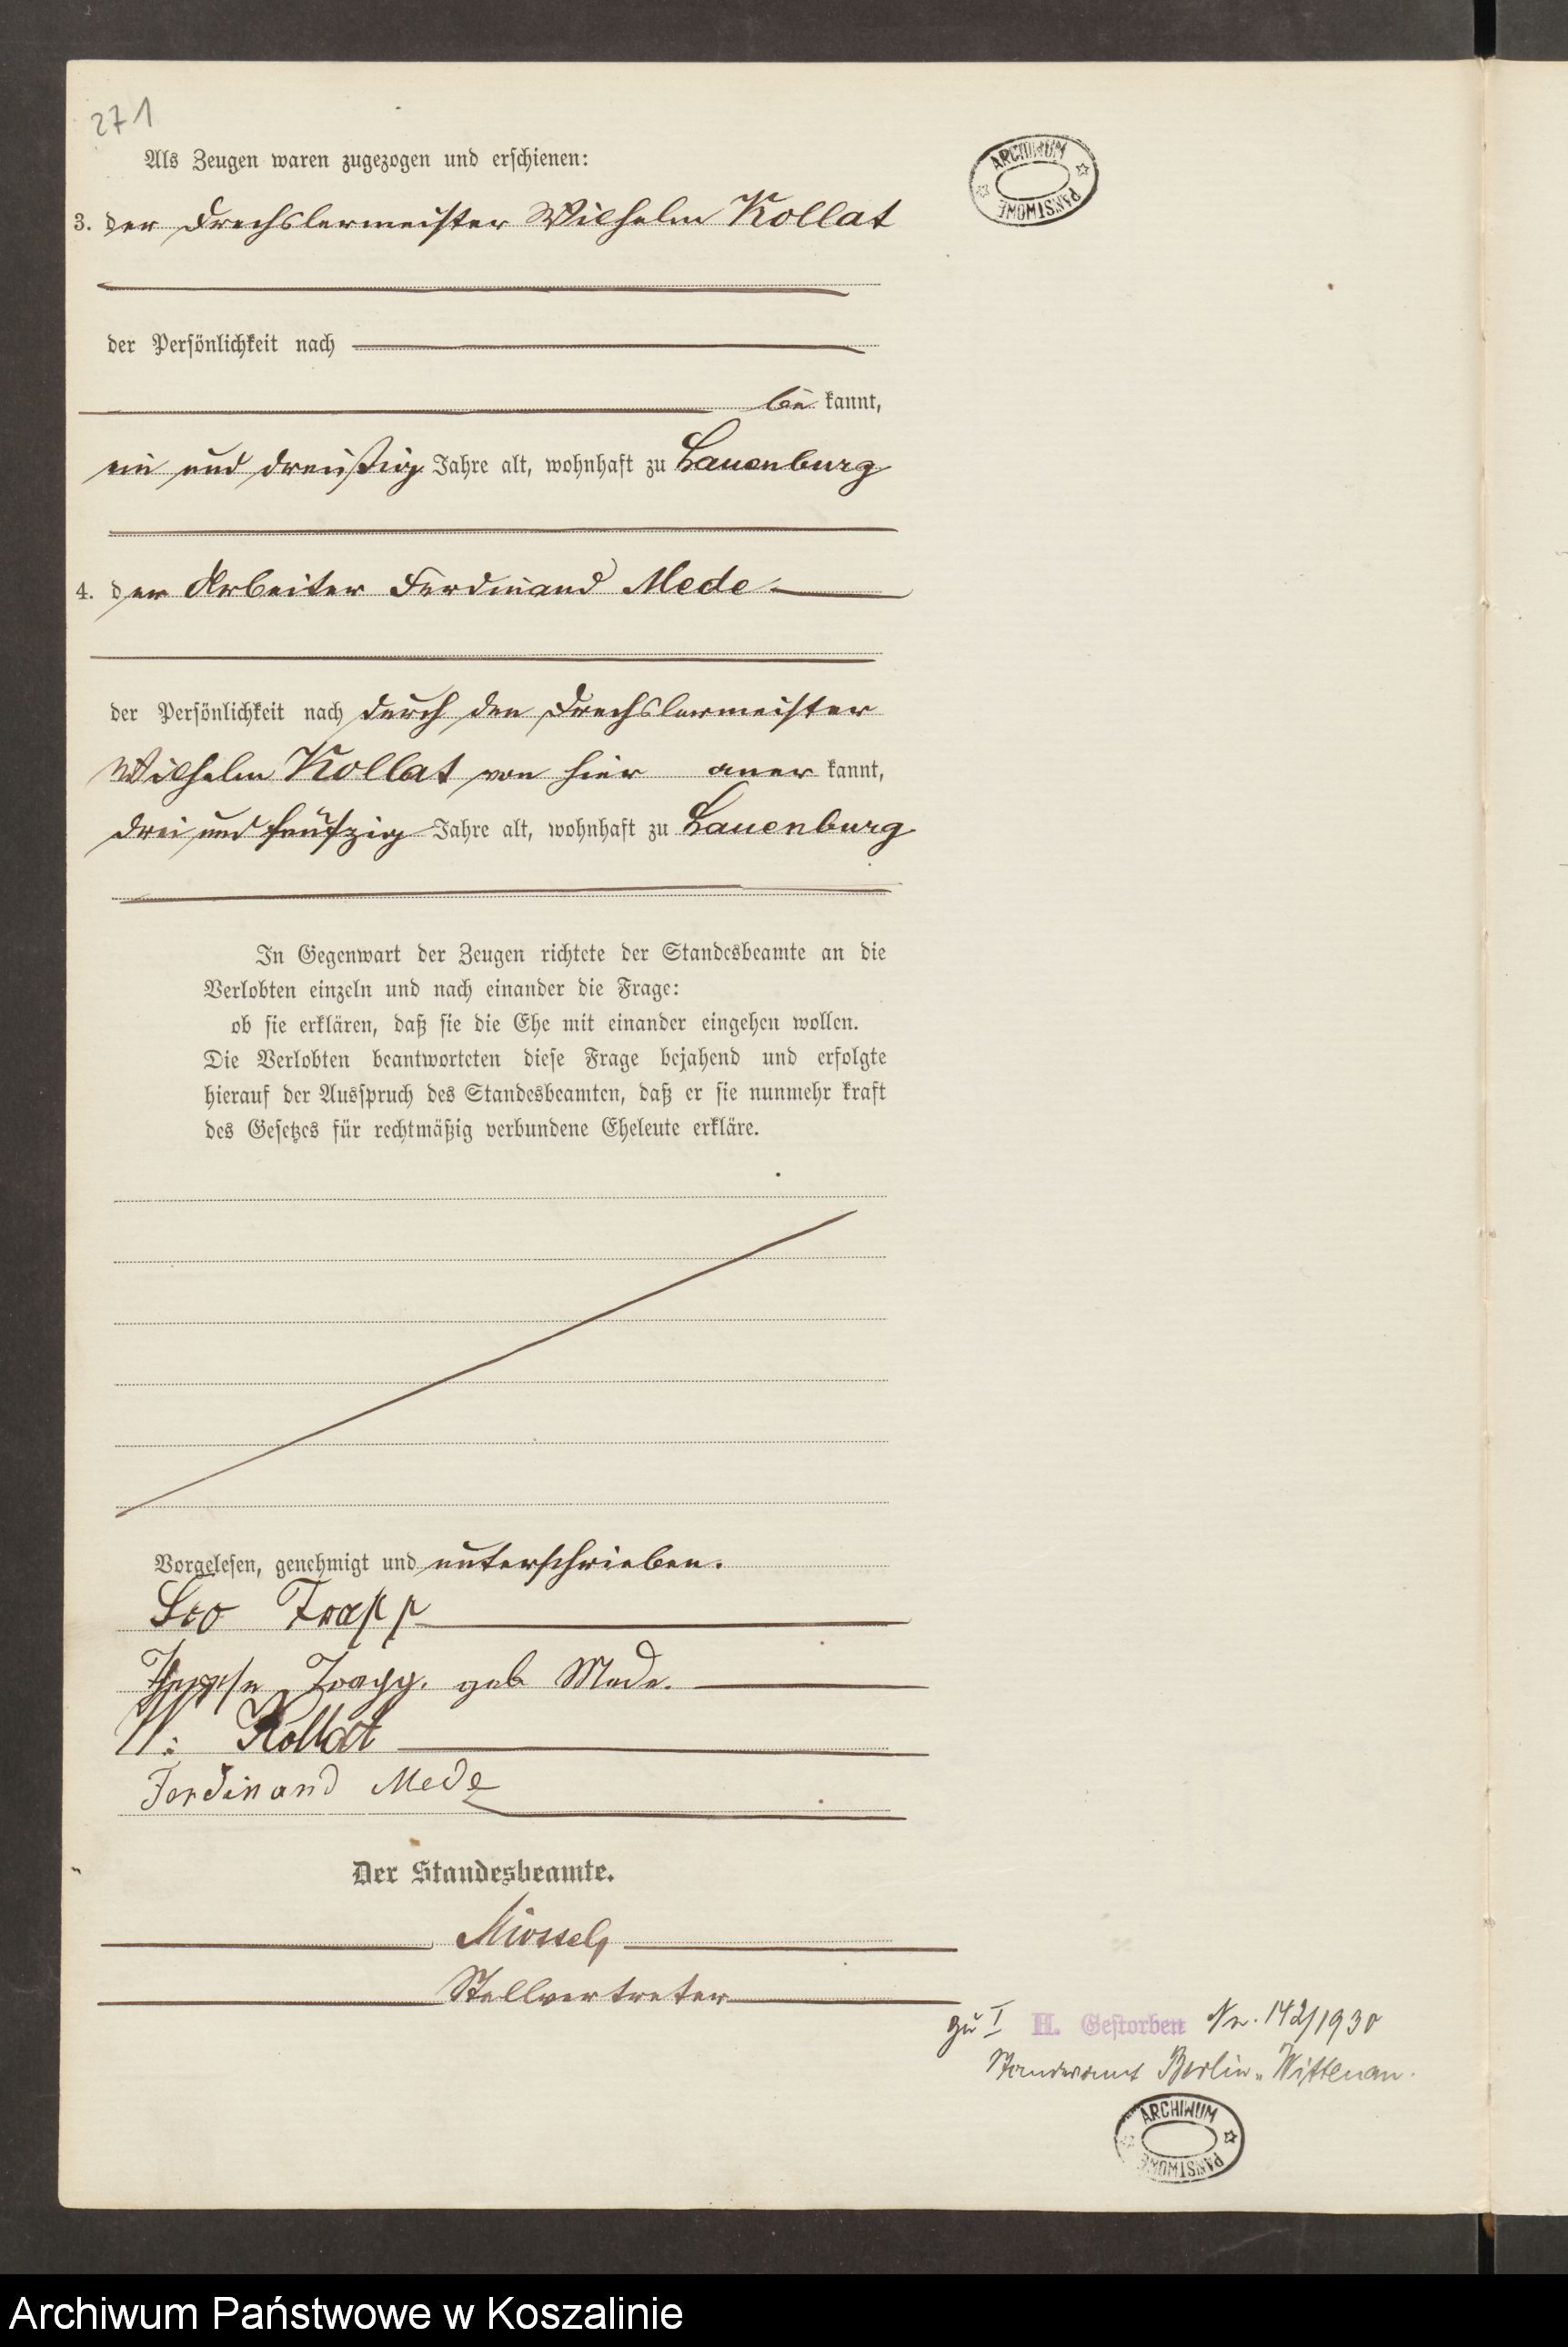 271
Als Zeugen waren zugezogen und erschienen:
ARCHIWUM PAŃSTWOWE
3. der Drechslermeister Wilhelm Kollat
der Persönlichkeit nach
be kannt,
ein und dreißig Jahre alt, wohnhaft zu Lauenburg
4. der Arbeiter Ferdinand Mede
der Persönlichkeit nach durch den Drechslermeister
Wilhelm Kollat von hier aner kannt,
drei und fünfzig Jahre alt, wohnhaft zu Lauenburg
In Gegenwart der Zeugen richtete der Standesbeamte an die
Verlobten einzeln und nach einander die Frage:
ob sie erklären, daß sie die Ehe mit einander eingehen wollen.
Die Verlobten beantworteten diese Frage bejahend und erfolgte
hierauf der Ausspruch des Standesbeamten, daß er sie nunmehr kraft
des Gesetzes für rechtmäßig verbundene Eheleute erkläre.
Vorgelesen, genehmigt und unterschrieben.
Leo Trapp
Trapp. geb Mede.
W: Kollat
Ferdinand Mede
Der Standesbeamte.
Stellvertreter
zu I H. Gestorben Nr. 142/1930
Standesamt Berlin-Wittenau.
ARCHIWUM PAŃSTWOWE
Archiwum Państwowe w Koszalinie